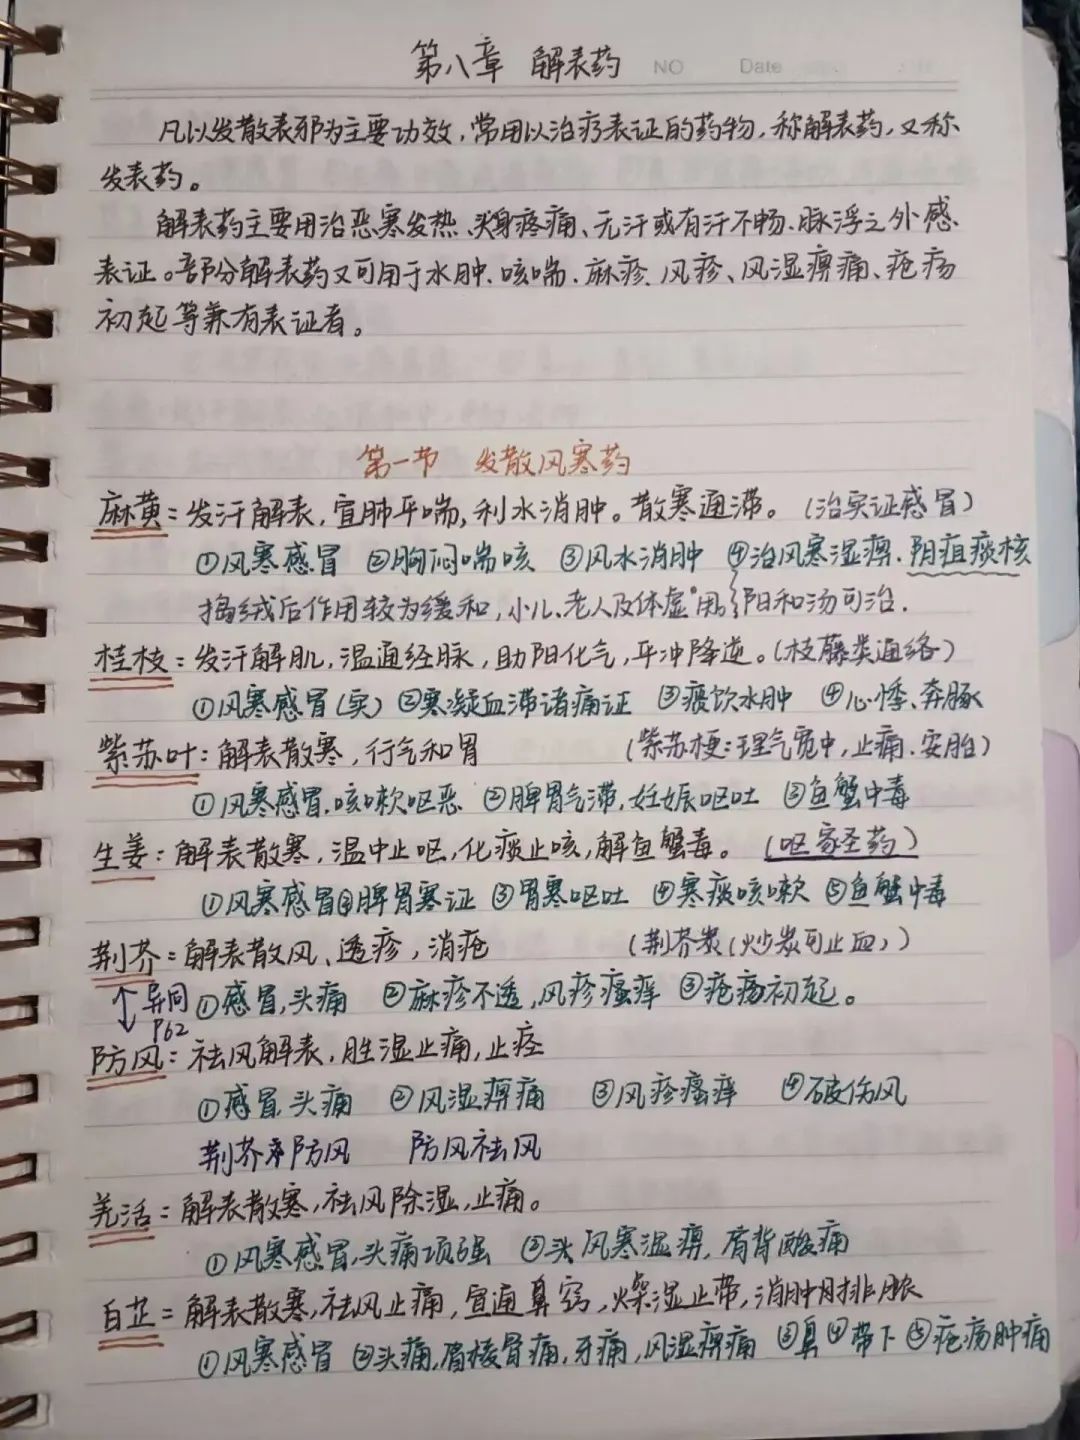 第八章 解表药 NO Date
凡以发散表邪为主要功效,常用以治疗表证的药物,称解表药,又称
发表药。
解表药主要用治恶寒发热、头身疼痛、无汗或有汗不畅、脉浮之外感
表证。部分解表药又可用于水肿、咳喘、麻疹、风疹、风湿痹痛、疮疡
初起等兼有表证者。
第一节 发散风寒药
麻黄:发汗解表,宣肺平喘,利水消肿。散寒通滞。(治实证感冒)
①风寒感冒 ②胸闷喘咳 ③风水消肿 ④治风寒湿痹、阴疽痰核
捣绒后作用较为缓和,小儿、老人及体虚用 阳和汤可治.
桂枝:发汗解肌,温通经脉,助阳化气,平冲降逆。(枝藤类通络)
①风寒感冒(实) ②寒凝血滞诸痛证 ③痰饮水肿 ④心悸、奔豚
紫苏叶:解表散寒,行气和胃 (紫苏梗:理气宽中,止痛、安胎)
①风寒感冒,咳嗽呕恶 ②脾胃气滞,妊娠呕吐 ③鱼蟹中毒
生姜:解表散寒,温中止呕,化痰止咳,解鱼蟹毒。(呕家圣药)
①风寒感冒②脾胃寒证 ③胃寒呕吐 ④寒痰咳嗽 ⑤鱼蟹中毒
荆芥:解表散风、透疹,消疮 (荆芥炭(炒炭可止血,)
↕异同 ①感冒,头痛 ②麻疹不透,风疹瘙痒 ③疮疡初起。
P62
防风:祛风解表,胜湿止痛,止痉
①感冒头痛 ②风湿痹痛 ③风疹瘙痒 ④破伤风
荆芥 防风 防风祛风
羌活:解表散寒,祛风除湿,止痛。
①风寒感冒,头痛项强 ②头风寒湿痹,肩背酸痛
白芷:解表散寒,祛风止痛,宣通鼻窍,燥湿止带,消肿排脓
①风寒感冒 ②头痛,眉棱骨痛,牙痛,风湿痹痛 ③鼻 ④带下 ⑤疮疡肿痛